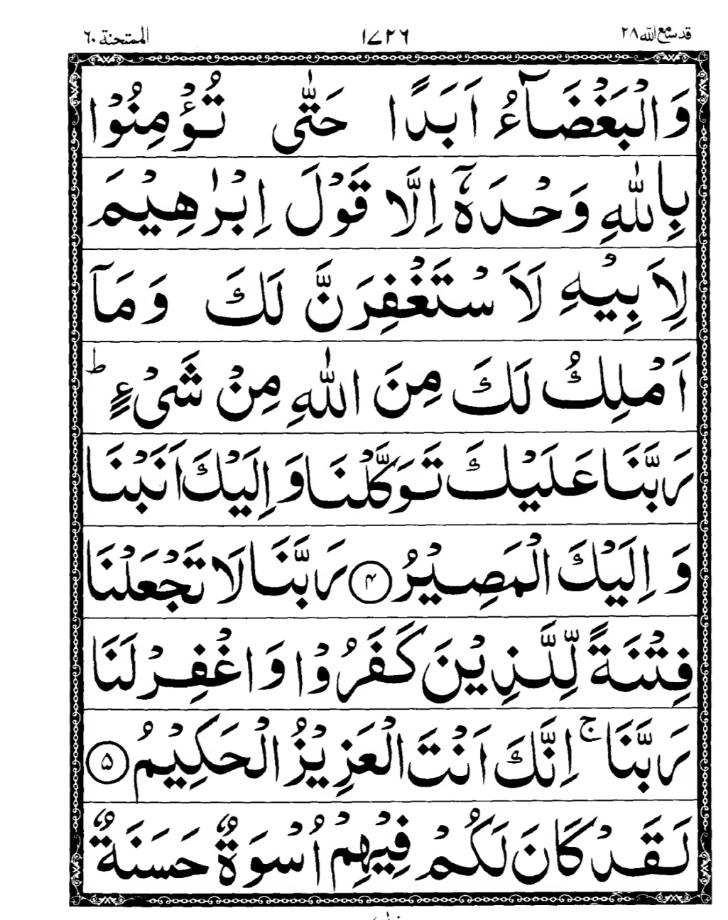 قد سمع الله ٢٨ ١٧٢٦ الممتحنة ٦٠
وَالْبَغْضَآءُ اَبَدًا حَتّٰى تُؤْمِنُوْا
بِاللّٰهِ وَحْدَهٗۤ اِلَّا قَوْلَ اِبْرٰهِيْمَ
لِاَبِيْهِ لَاَسْتَغْفِرَنَّ لَكَ وَمَاۤ
اَمْلِكُ لَكَ مِنَ اللّٰهِ مِنْ شَیْءٍ ؕ
رَبَّنَا عَلَيْكَ تَوَكَّلْنَا وَ اِلَيْكَ اَنَبْنَا
وَ اِلَيْكَ الْمَصِيْرُ ۴ رَبَّنَا لَا تَجْعَلْنَا
فِتْنَةً لِّلَّذِيْنَ كَفَرُوْا وَ اغْفِرْ لَنَا
رَبَّنَا ۚ اِنَّكَ اَنْتَ الْعَزِيْزُ الْحَكِيْمُ ۵
لَقَدْ كَانَ لَكُمْ فِيْهِمْ اُسْوَةٌ حَسَنَةٌ